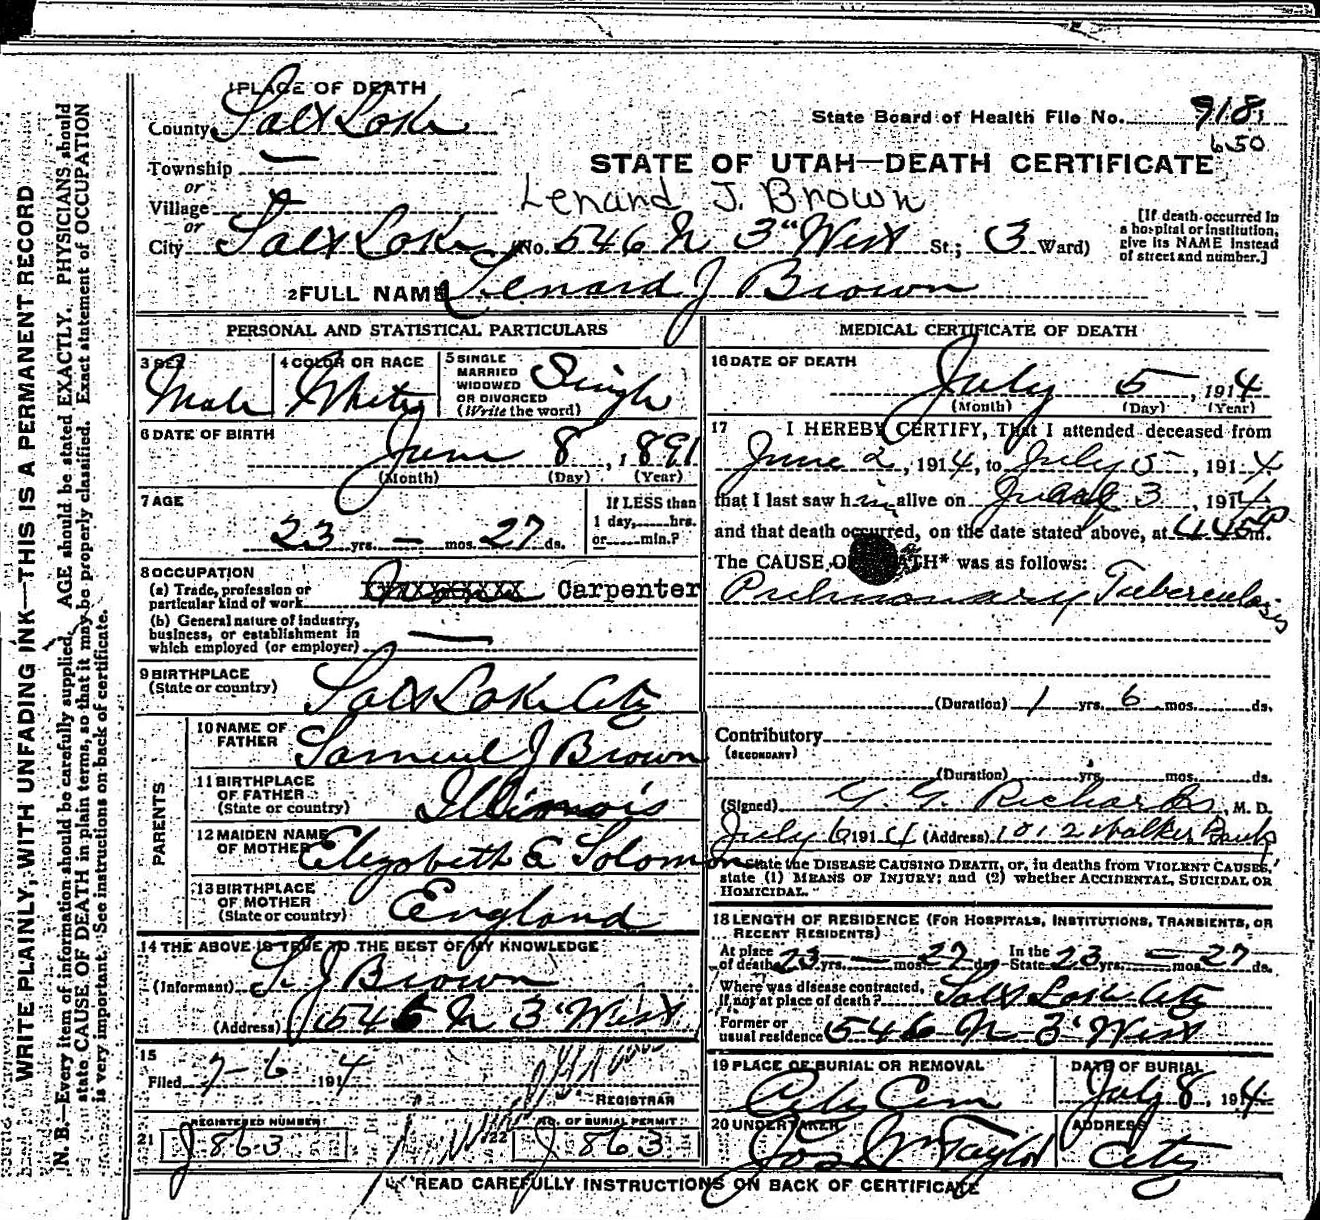 1 PLACE OF DEATH
County Salt Lake
State Board of Health File No. 918
650
Township —
STATE OF UTAH—DEATH CERTIFICATE
or
Village
Lenard J. Brown
or
City Salt Lake (No. 546 N 3" West St.; 3 Ward)
[If death occurred in
a hospital or institution,
give its NAME instead
of street and number.]
2 FULL NAME Lenard J Brown
PERSONAL AND STATISTICAL PARTICULARS
3 SEX
Male
4 COLOR OR RACE
White
5 SINGLE
MARRIED
WIDOWED
OR DIVORCED
(Write the word)
Single
6 DATE OF BIRTH
June 8, 1891
(Month) (Day) (Year)
7 AGE
23 yrs. — mos. 27 ds.
If LESS than
1 day, hrs.
or min.?
8 OCCUPATION
(a) Trade, profession or
particular kind of work
Carpenter
(b) General nature of industry,
business, or establishment in
which employed (or employer) —
9 BIRTHPLACE
(State or country)
Salt Lake City
PARENTS
10 NAME OF
FATHER
Samuel J Brown
11 BIRTHPLACE
OF FATHER
(State or country)
Illinois
12 MAIDEN NAME
OF MOTHER
Elizabeth E Solomon
13 BIRTHPLACE
OF MOTHER
(State or country)
England
14 THE ABOVE IS TRUE TO THE BEST OF MY KNOWLEDGE
(Informant) S. J Brown
(Address) 546 N 3" West
15
Filed 7-6 1914
REGISTRAR
REGISTERED NUMBER
21 J 863
NO. OF BURIAL PERMIT
22 J 863
MEDICAL CERTIFICATE OF DEATH
16 DATE OF DEATH
July 5, 1914
(Month) (Day) (Year)
17 I HEREBY CERTIFY, That I attended deceased from
June 2, 1914, to July 5, 1914
that I last saw him alive on July 3 1914
and that death occurred, on the date stated above, at 445 P m.
The CAUSE OF DEATH* was as follows:
Pulmonary Tuberculosis
(Duration) 1 yrs. 6 mos. ds.
Contributory
(SECONDARY)
(Duration) yrs. mos. ds.
(Signed) G. G. Richards, M. D.
July 6 1914 (Address) 1012 Walker Bank
*State the DISEASE CAUSING DEATH, or, in deaths from VIOLENT CAUSES,
state (1) MEANS OF INJURY; and (2) whether ACCIDENTAL, SUICIDAL OR
HOMICIDAL.
18 LENGTH OF RESIDENCE (FOR HOSPITALS, INSTITUTIONS, TRANSIENTS, OR
RECENT RESIDENTS)
At place
of death 23 yrs. — mos. 27 ds.
In the
State 23 yrs. — mos. 27 ds.
Where was disease contracted,
if not at place of death? Salt Lake City
Former or
usual residence 546 N 3" West
19 PLACE OF BURIAL OR REMOVAL
City Cem
DATE OF BURIAL
July 8, 1914
20 UNDERTAKER
Jos Wm Taylor
ADDRESS
City
READ CAREFULLY INSTRUCTIONS ON BACK OF CERTIFICATE
WRITE PLAINLY, WITH UNFADING INK—THIS IS A PERMANENT RECORD
N. B.—Every item of information should be carefully supplied. AGE should be stated EXACTLY. PHYSICIANS should
state CAUSE OF DEATH in plain terms, so that it may be properly classified. Exact statement of OCCUPATION
is very important. See instructions on back of certificate.